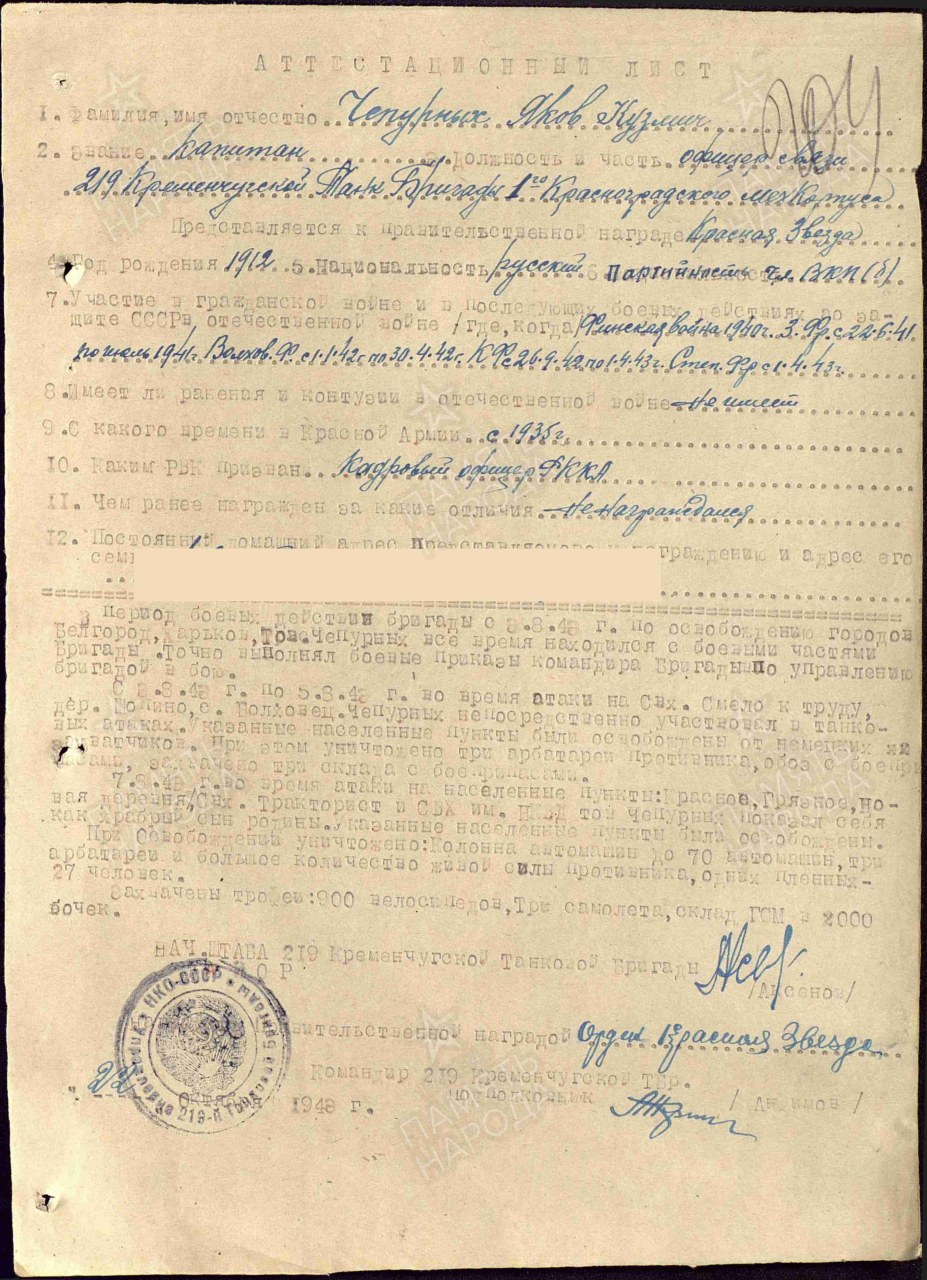 АТТЕСТАЦИОННЫЙ ЛИСТ
1. Фамилия, имя отчество Чепурных Яков Кузмич
2. Звание капитан 3. Должность и часть офицер связи
219 Кременчугской Танк Бригады 1го Красноградского мехКорпуса
Представляется к правительственной награде Красная Звезда
4. Год рождения 1912 5. Национальность русский 6 Партийность чл ВКП(б)
7. Участие в гражданской войне и в последующих боевых действиях по за-
щите СССРи отечественной войне /где, когда/ Финская война 1940г. З. Фр. с 22.6.41
по июль 1941г. Волхов. Ф. с 1.1.42г по 30.4.42г. КФ с 26.9.42 по 1.4.43г. Степ. Фр с 1.4.43г.
8. Имеет ли ранения и контузии в отечественной войне не имеет
9. С какого времени в Красной Армии с 1935г
10. Каким РВК призван Кадровый офицер РККА
11. Чем ранее награжден за какие отличия не награждался
12. Постоянный домашний адрес представляемого к награждению и адрес его
семьи
В период боевых действий бригады с 3.8.43 г. по освобождению городов
Белгород, Харьков, Тов. Чепурных все время находился с боевыми частями
Бригады. Точно выполнял боевые приказы командира Бригады по управлению
бригадой в бою.
С 3.8.43 г. по 5.8.43 г. во время атаки на Свх. Смело к труду,
дер. Шопино, с. Болховец. Чепурных непосредственно участвовал в танко-
вых атаках. Указанные населенные пункты были освобождены от немецких
захватчиков. При этом уничтожено три арбатареи противника, обоз с боепри
пасами, захвачено три склада с боеприпасами.
7.8.43 г. во время атаки на населенные пункты: Красное, Грязное, Но-
вая деревня/Свх. Тракторист и СВХ им. НКВД тов Чепурных показал себя
как храбрый сын родины. Указанные населенные пункты были освобождены.
При освобождении уничтожено: Колонна автомашин до 70 автомашин, три
арбатареи и большое количество живой силы противника, одних пленных-
27 человек.
Захвачены трофеи: 900 велосипедов, Три самолета, склад ГСМ в 2000
бочек.
НАЧ. ШТАБА 219 Кременчугской Танковой Бригады
/Аксенов/
вительственной наградой Орден Красная Звезда
Командир 219 Кременчугской ТБр.
подполковник / Анфимов /
"22" Октября 1943 г.
НКО-СССР